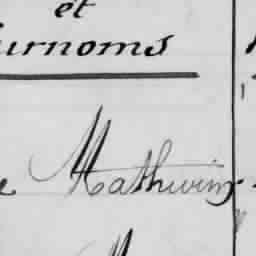 et
urnoms
e Mathurin